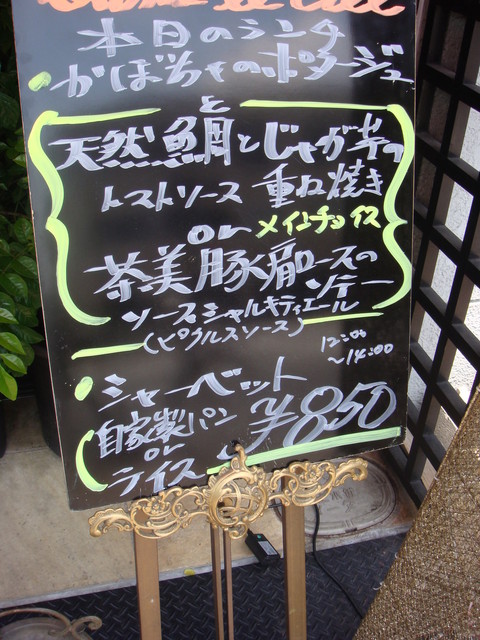 本日のランチ
かぼちゃのポタージュ
と
天然鯛とじゃが芋の
トマトソース 重ね焼き
or メインチョイス
茶美豚肩ロースの
ソテー
ソースシャルキティエール
(ピクルスソース)
12:00
~14:00
シャーベット
自家製パン ¥850
or
ライス